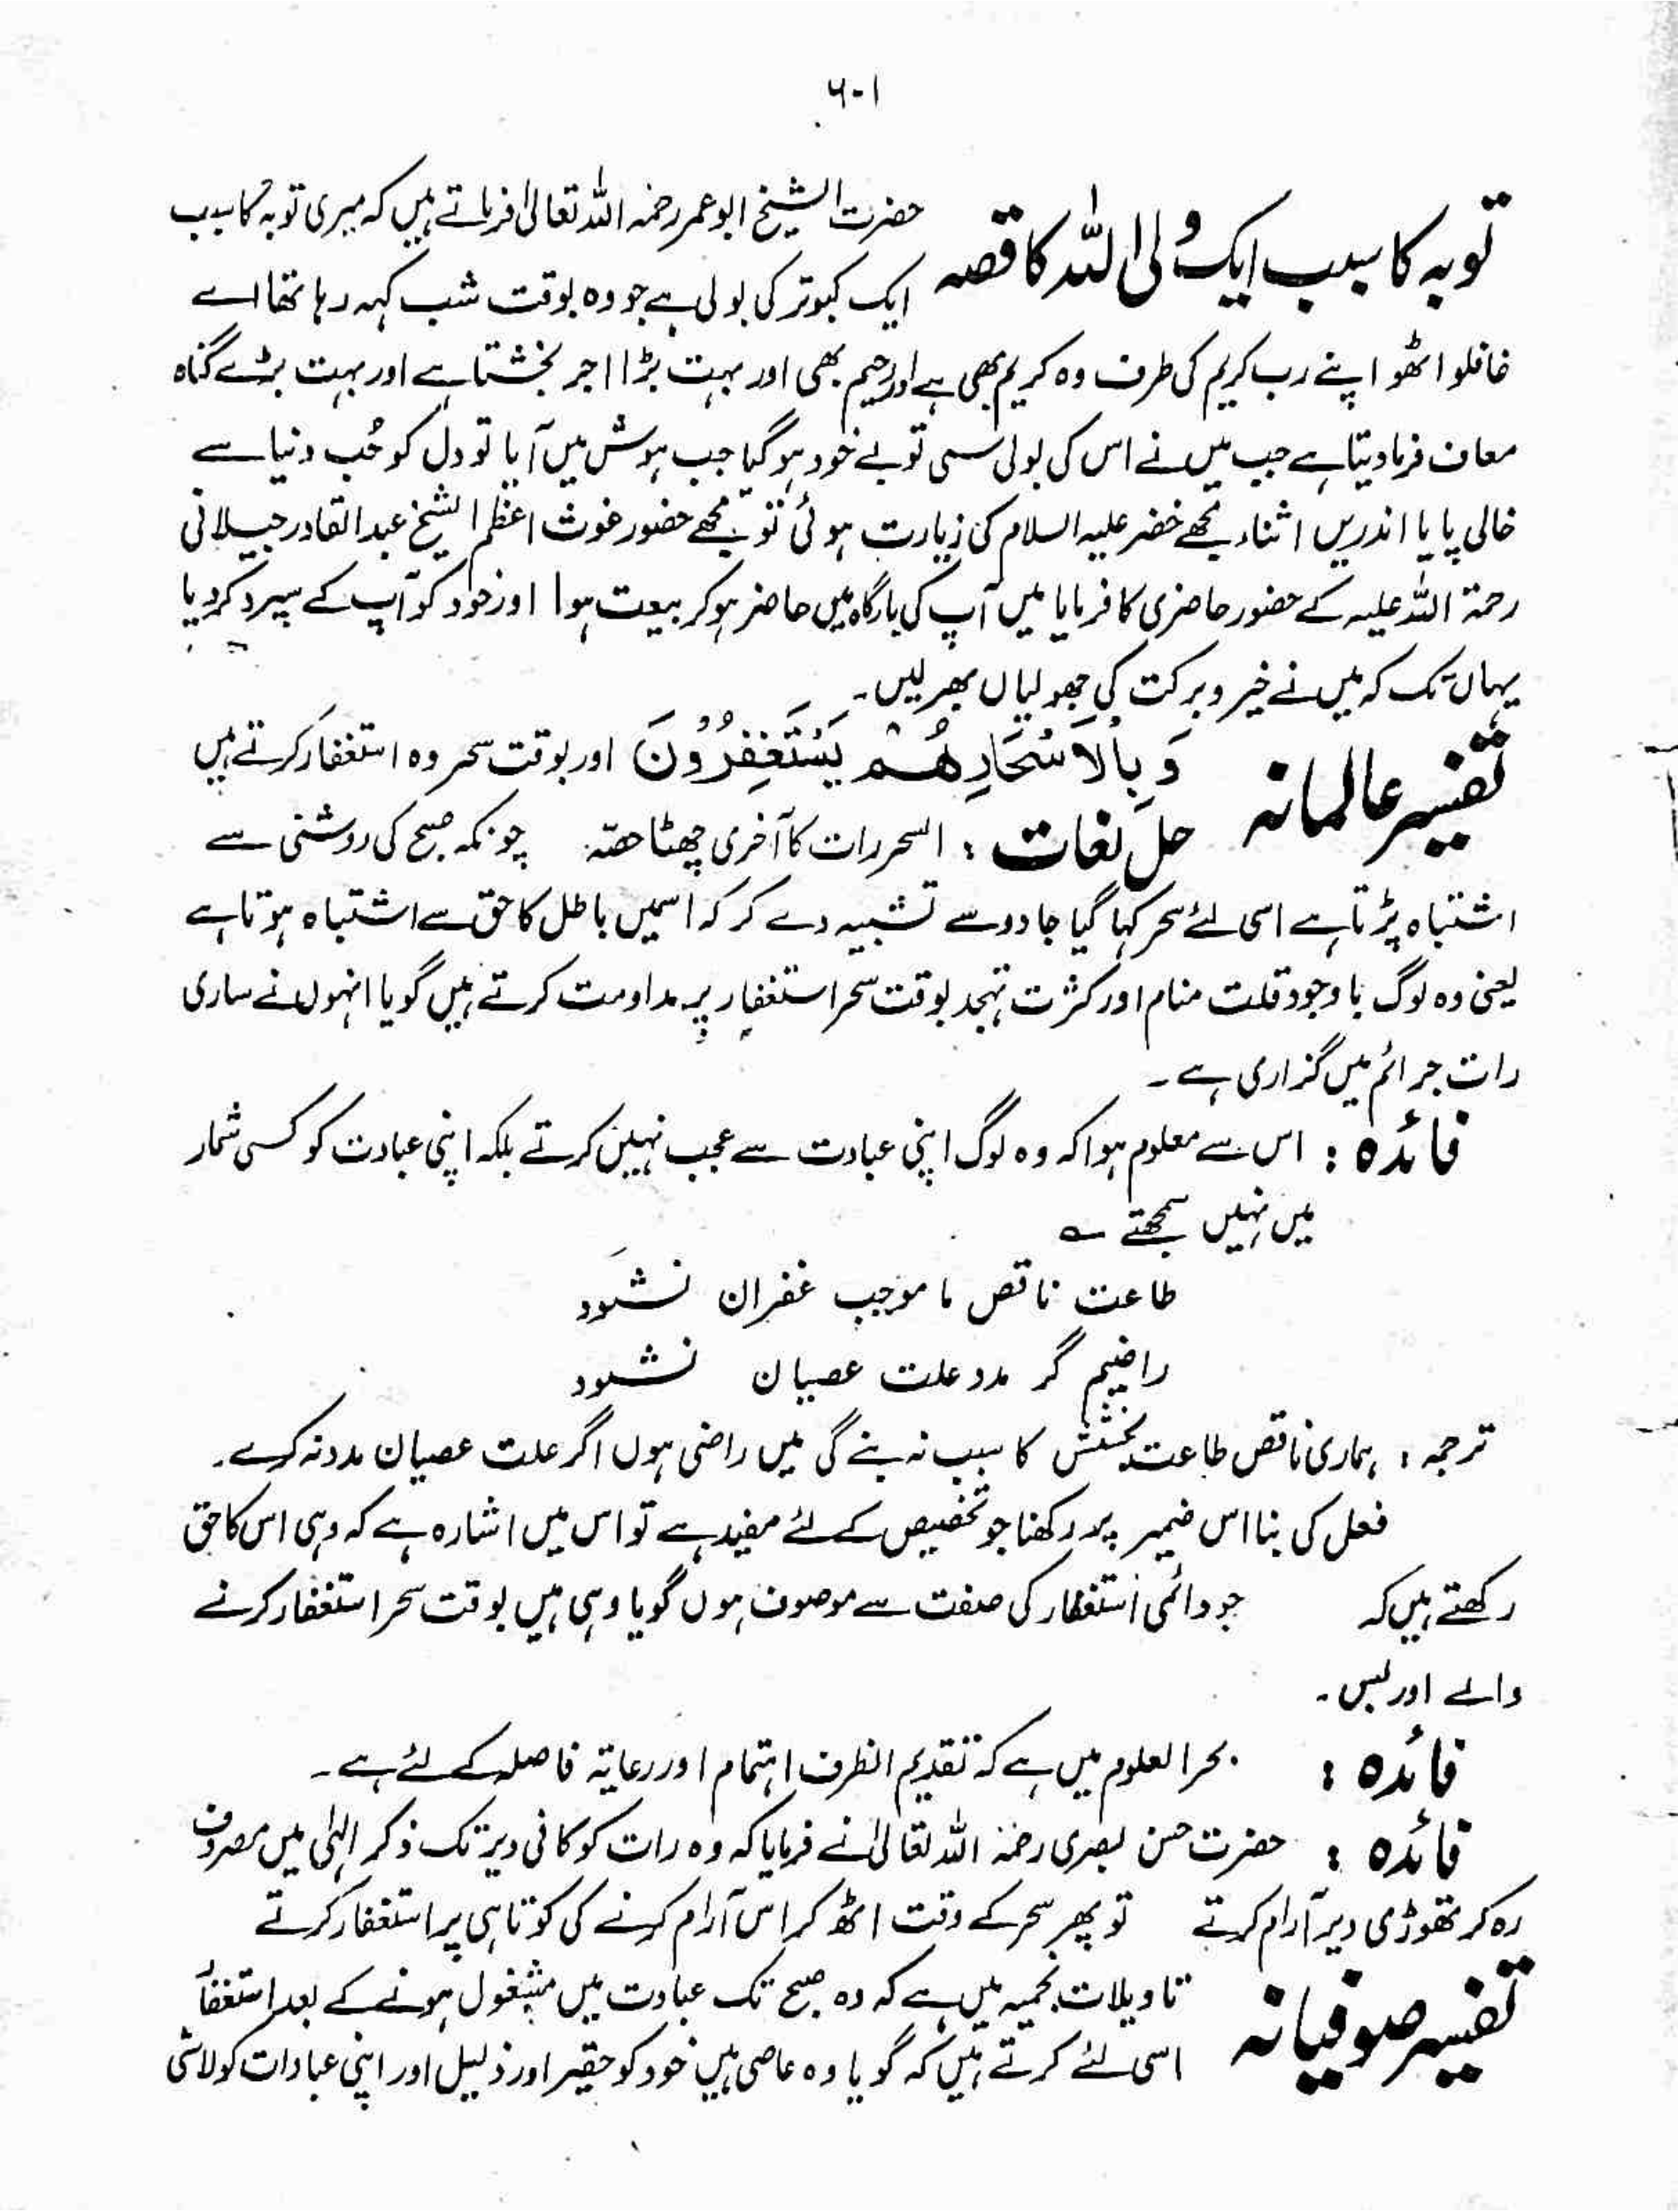 ۶۰۱
توبہ کا سبب ایک ولی اللہ کا قصہ
حضرت الشیخ ابو عمر رحمہ اللہ تعالیٰ فرماتے ہیں کہ میری توبہ کا سبب
ایک کبوتر کی بولی ہے جو وہ بوقت شب کہہ رہا تھا اے
غافلو اٹھو اپنے رب کریم کی طرف وہ کریم بھی ہے اور رحیم بھی اور بہت بڑا اجر بخشتا ہے اور بہت بڑے گناہ
معاف فرما دیتا ہے جب میں نے اس کی بولی سنی تو بے خود ہو گیا جب ہوش میں آیا تو دل کو حُب دنیا سے
خالی پایا اندریں اثناء مجھے خضر علیہ السلام کی زیارت ہوئی تو مجھے حضور غوث اعظم الشیخ عبد القادر جیلانی
رحمۃ اللہ علیہ کے حضور حاضری کا فرمایا میں آپ کی بارگاہ میں حاضر ہو کر بیعت ہوا اور خود کو آپ کے سپرد کر دیا
یہاں تک کہ میں نے خیر و برکت کی جھولیاں بھر لیں۔
تفسیر عالمانہ
وَ بِالْاَسْحَارِ هُمْ يَسْتَغْفِرُوْنَ اور بوقت سحر وہ استغفار کرتے ہیں
حل لغات : السحر رات کا آخری چھٹا حصّہ چونکہ صبح کی روشنی سے
اشتباہ پڑتا ہے اسی لئے سحر کہا گیا جادو سے تشبیہ دے کر کہ اسمیں باطل کا حق سے اشتباہ ہوتا ہے
یعنی وہ لوگ باوجود قلت منام اور کثرت تہجد بوقت سحر استغفار پر مداومت کرتے ہیں گویا انہوں نے ساری
رات جرائم میں گزاری ہے ۔
فائدہ : اس سے معلوم ہوا کہ وہ لوگ اپنی عبادت سے عجب نہیں کرتے بلکہ اپنی عبادت کو کسی شمار
میں نہیں سمجھتے ؎
طاعت ناقص ما موجب غفران نشود
راضیم گر مدد علت عصیان نشود
ترجمہ : ہماری ناقص طاعت بخشش کا سبب نہ بنے گی میں راضی ہوں اگر علت عصیان مدد نہ کرے ۔
فعل کی بنا اس ضمیر پر رکھنا جو تخصیص کے لئے مفید ہے تو اس میں اشارہ ہے کہ وہی اس کا حق
رکھتے ہیں کہ جو دائمی استغفار کی صفت سے موصوف ہوں گویا وہی ہیں بوقت سحر استغفار کرنے
والے اور بس ۔
فائدہ : بحر العلوم میں ہے کہ تقدیم الظرف اہتمام اور رعایۃ فاصلہ کے لئے ہے ۔
فائدہ : حضرت حسن بصری رحمۃ اللہ تعالیٰ نے فرمایا کہ وہ رات کو کافی دیر تک ذکر الٰہی میں مصروف
رہ کر تھوڑی دیر آرام کرتے تو پھر سحر کے وقت اٹھ کر اس آرام کرنے کی کوتاہی پر استغفار کرتے
تفسیر صوفیانہ
تاویلات نجمیہ میں ہے کہ وہ صبح تک عبادت میں مشغول ہونے کے بعد استغفار
اسی لئے کرتے ہیں کہ گویا وہ عاصی ہیں خود کو حقیر اور ذلیل اور اپنی عبادات کو لاشی